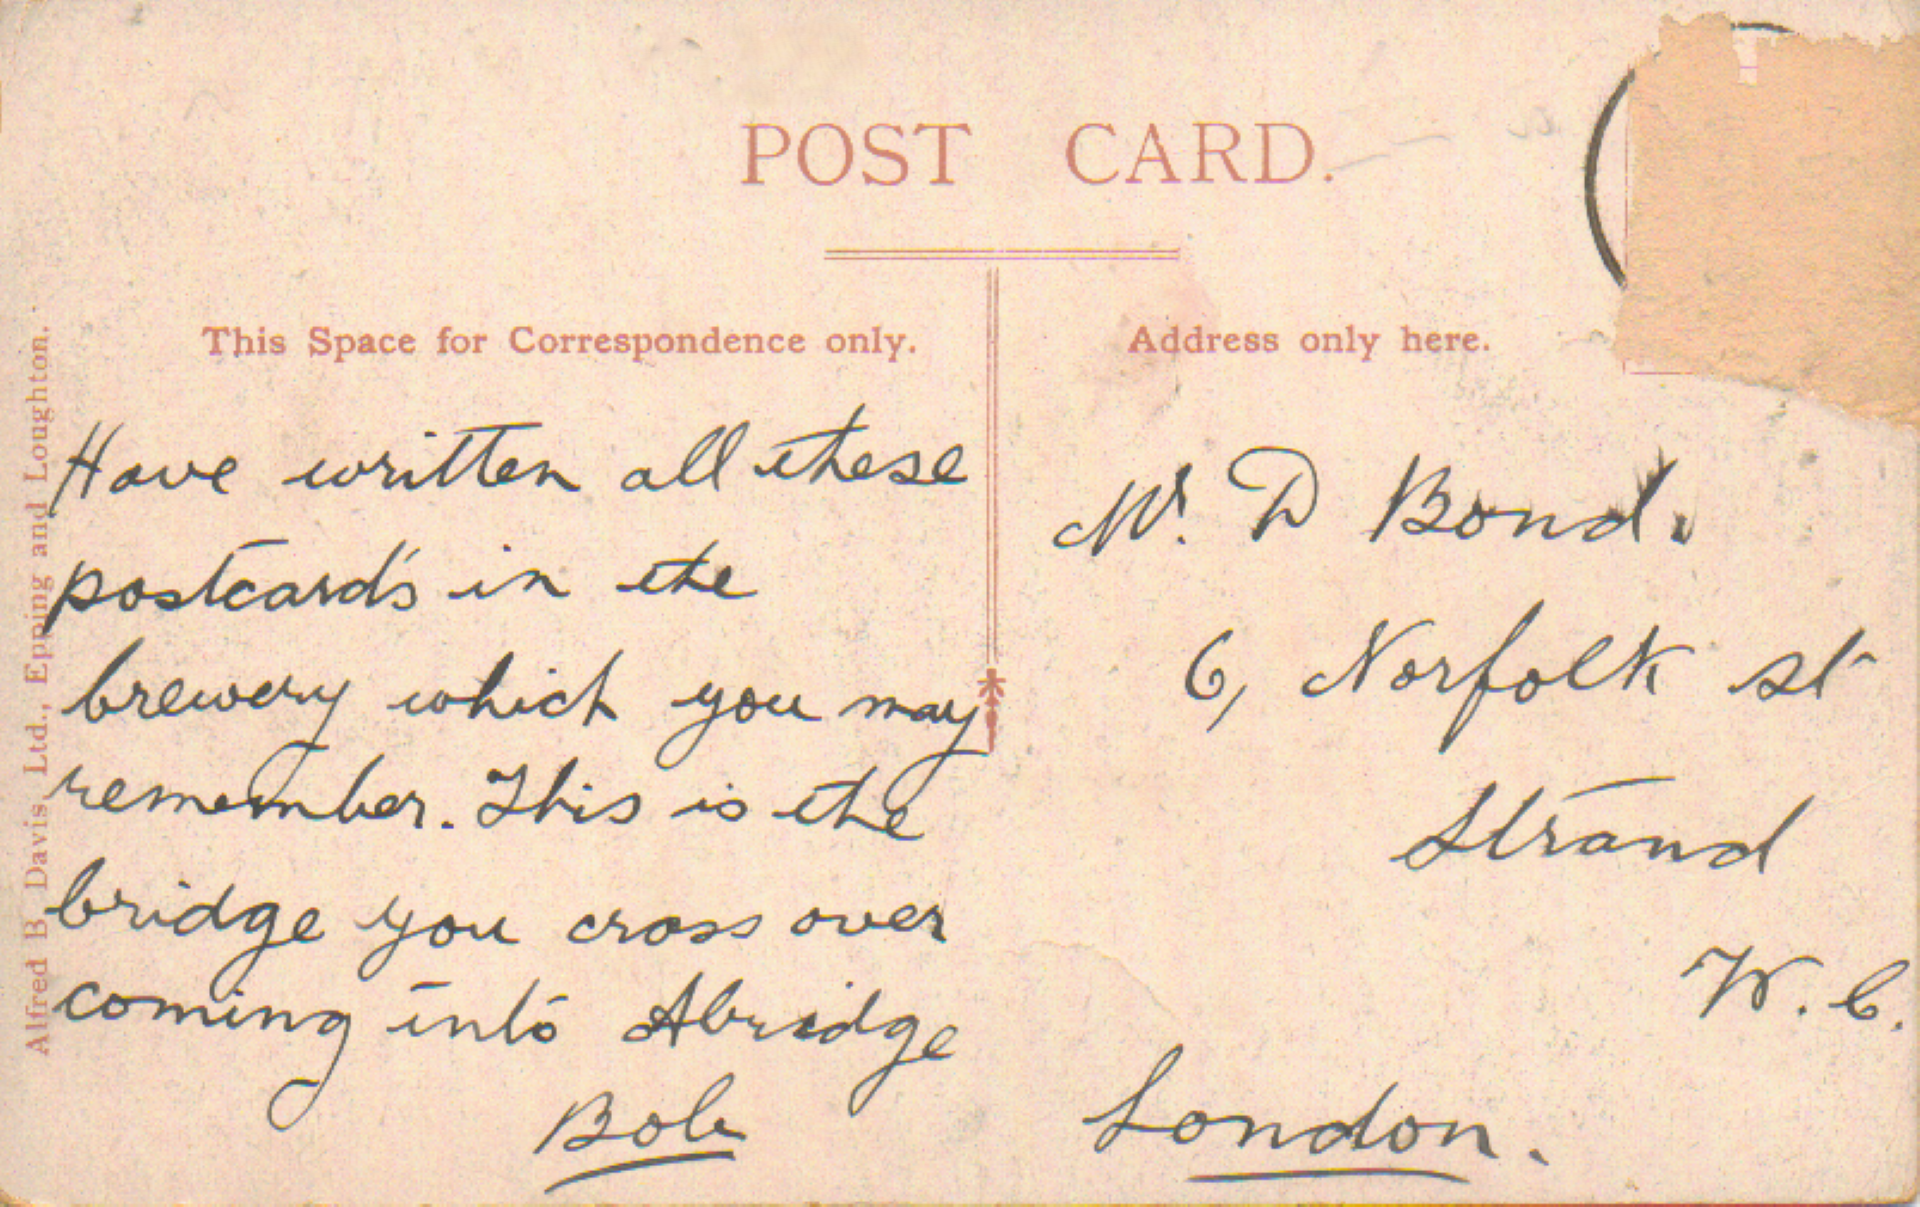 POST CARD.
This Space for Correspondence only.
Address only here.
Alfred B Davis Ltd., Epping and Loughton.
Have written all these
postcards in the
brewery which you may
remember. This is the
bridge you cross over
coming into Abridge
Bob
Mr. D Bond.
6, Norfolk St
Strand
W. C.
London.